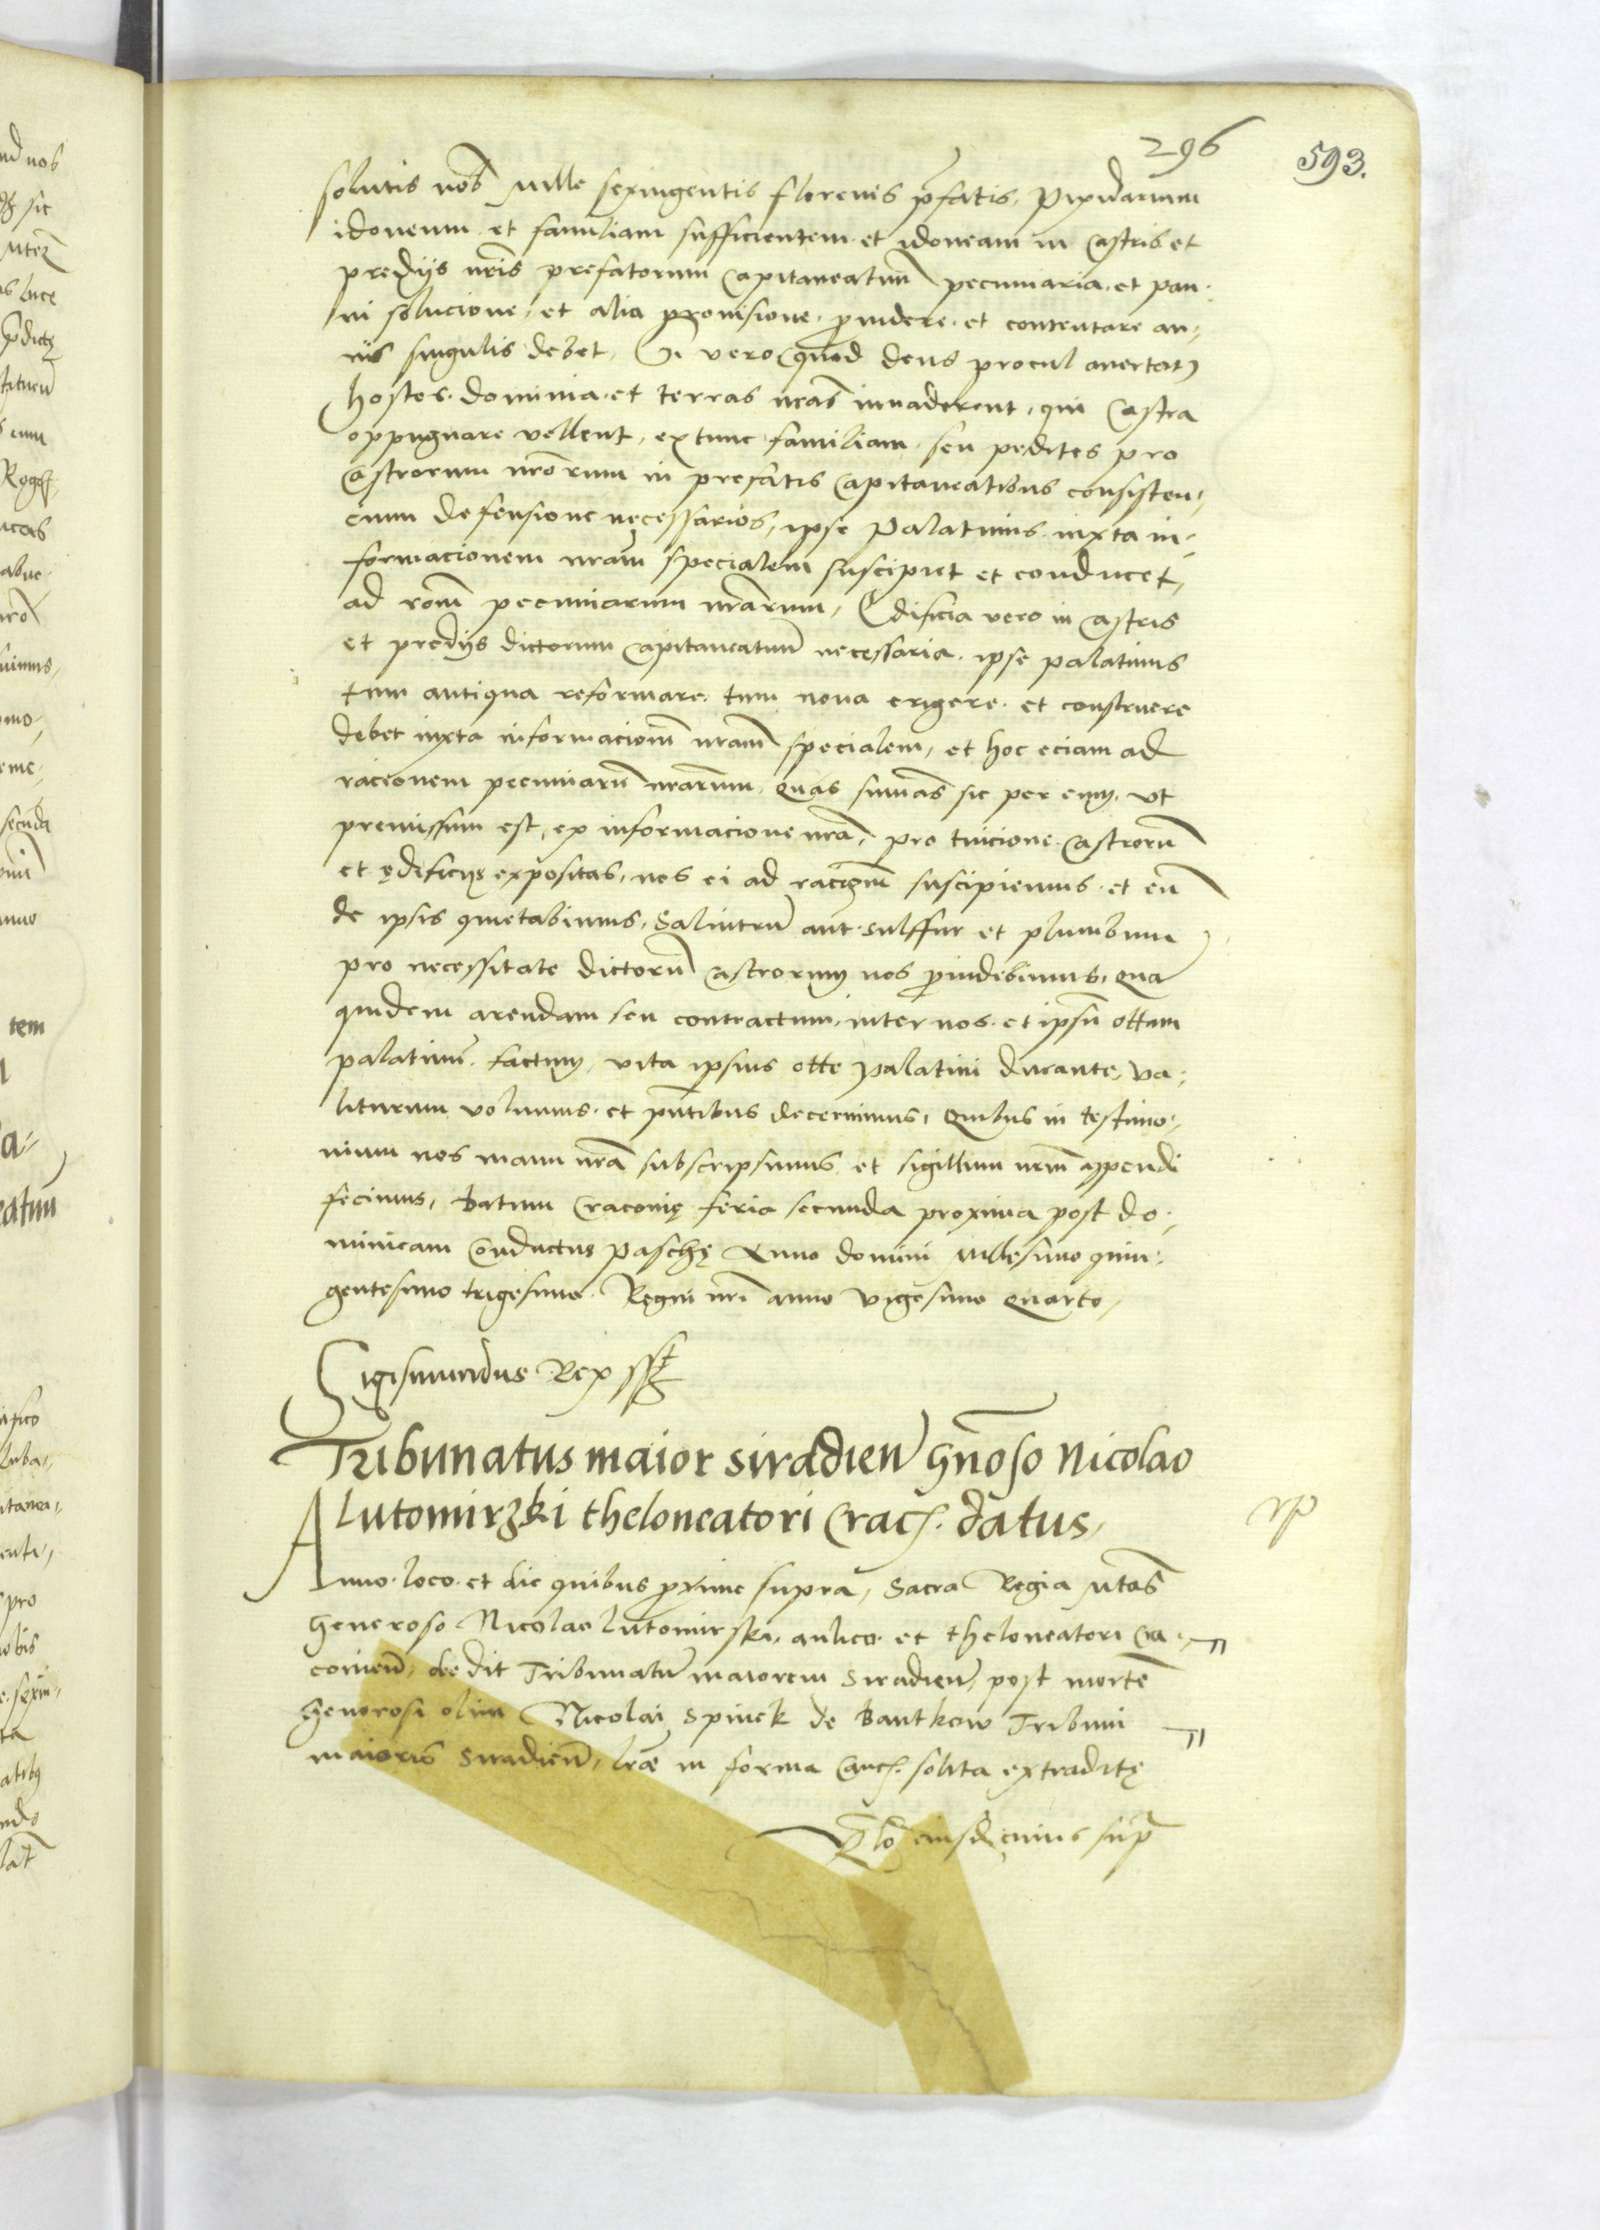 296
593.
solutis nob̃ Mille sexingentis florenis p̃fatis, Pixidarium
idoneum et familiam sufficientem et idoneam in castris et
predijs nr̃is prefatorum capitaneatuũ pecuniaria et pan-
ni solucione, et alia provisione providere et contentare an-
nis singulis debet, Si vero (quod deus procul avertat)
hostes dominia et terras nr̃as invaderent, qui castra
oppugnare vellent, extunc familiam seu pedites pro
castrorum nr̃orum in prefatis capitaneatibus consisten-
cium defensione necessarios, ipse Palatinus iuxta in-
formacionem nr̃am specialem suscipiet et conducet,
ad rõnem pecuniarum nr̃arum, Edificia vero in castris
et predijs dictorum capitaneatuũ necessaria ipse palatinus
tum antiqua reformare, tum nova erigere et construere
debet iuxta informacionẽ nr̃am specialem, et hoc eciam ad
racionem pecuniarũ nr̃arum, quas summas sic per eum, ut
premissum est, ex informacione nr̃a, pro tuicione castrorũ
et ędificijs expositas, nos ei ad racionẽ suscipiemus et eũ
de ipsis quietabimus, Salnitrũ aut sulffur et plumbum
pro necessitate dictorũ castrorum nos providebimus, Qua
quidem arendam seu contractum, inter nos et ipsũ ottam
palatinũ factum, vita ipsius otte palatini durante, va-
liturum volumus et pñtibus decernimus, Quibus in testimo-
nium nos manu nr̃a subscripsimus et sigillum nr̃m appendi
fecimus, Datum Cracovię feria secunda proxima post do-
minicam Conductus paschę Anno domini Millesimo quin-
gentesimo trigesimo Regni nr̃i anno vigesimo quarto,
Sigismundus Rex sst
Tribunatus maior siradieñ gñoso Nicolao
Lutomirzki theloneatori Crac. datus,
Anno loco et die quibus proxime supra, Sacra Regia Mtas
generoso Nicolao Lutomirski, aulico et theloneatori Cra-
covieñ, dedit Tribunatũ maiorem Siradieñ, post mortẽ
generosi olim Nicolai Spinek de Bantkow Tribuni
maioris Siradieñ, lr̃æ in forma Canc. solita extraditę
Rel̃o eiusdem cuius supra